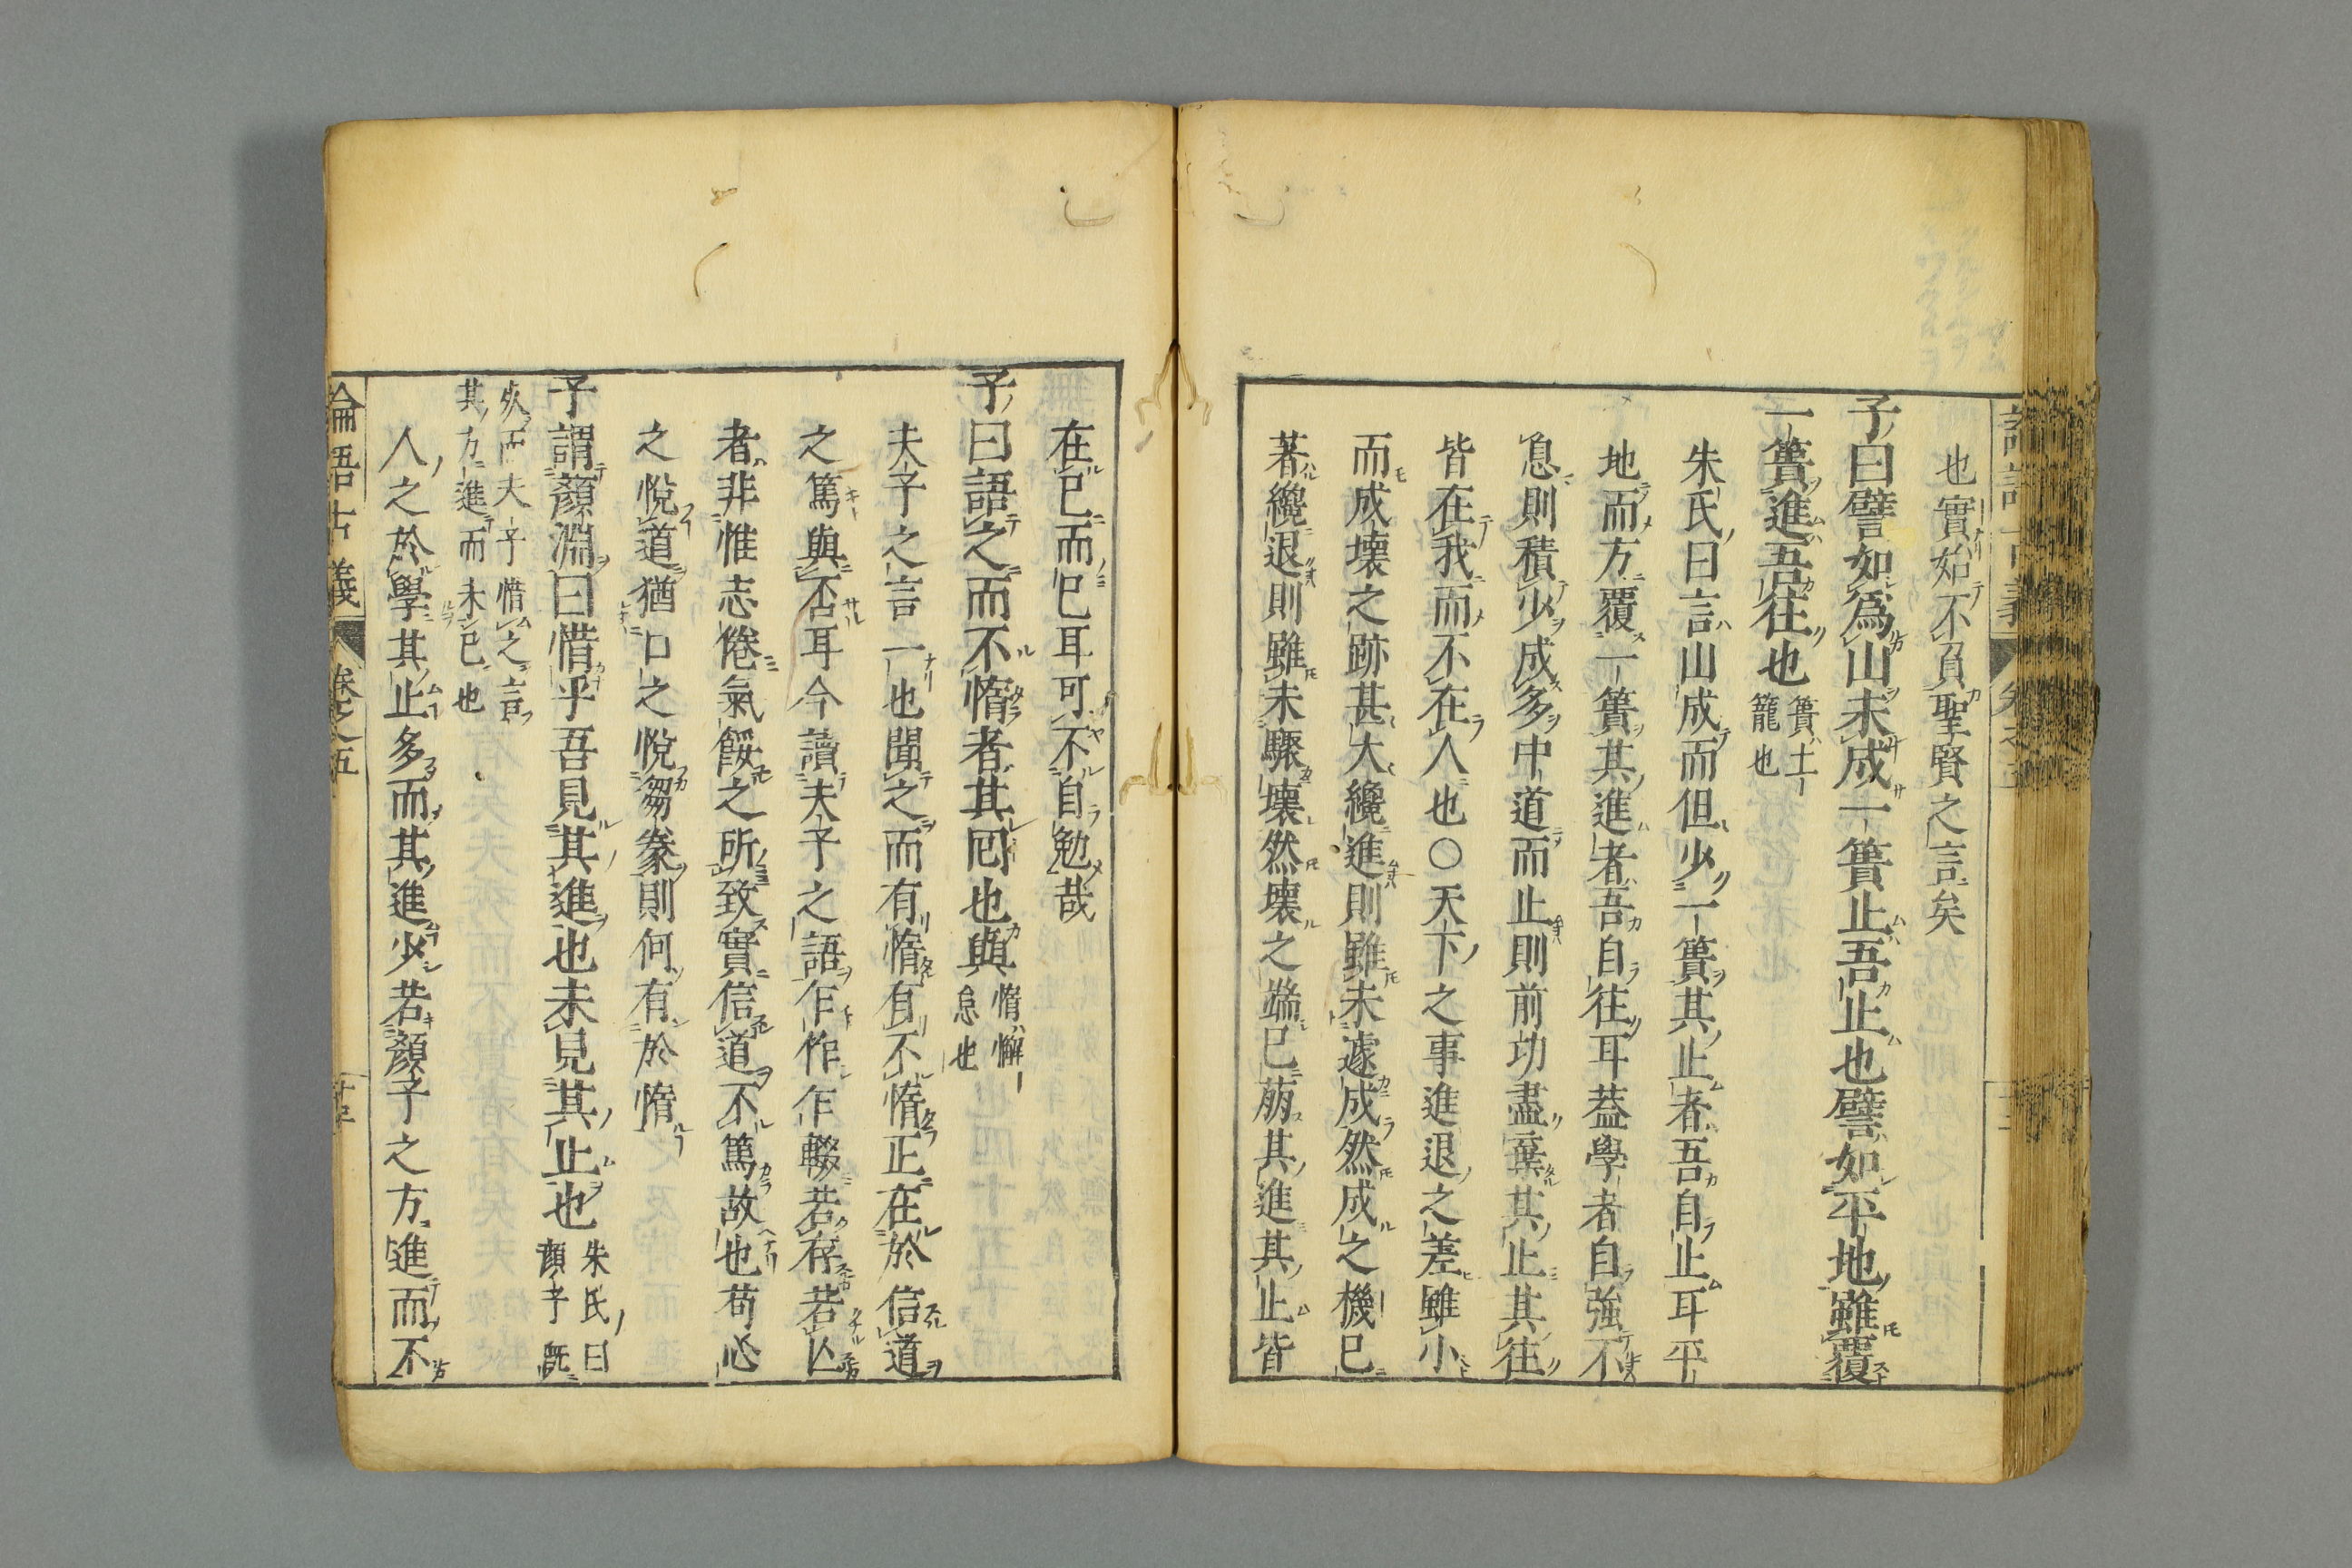 也實始不負聖賢之言矣
子曰譬如爲山未成一簣止吾止也譬如平地雖覆
一簣進吾往也簣土籠也
朱氏曰言山成而但少一簣其止者吾自止耳平
地而方覆一簣其進者吾自往耳蓋學者自強不
息則積少成多中道而止則前功盡棄其止其往
皆在我而不在人也○天下之事進退之差雖小
而成壞之跡甚大纔進則雖未遽成然成之機已
著纔退則雖未驟壞然壞之端已萠其進其止皆
在已而已耳可不自勉哉
子曰語之而不惰者其囘也與惰懈怠也
夫子之言一也聞之而有惰有不惰正在於信道
之篤與不耳今讀夫子之語乍作乍輟若存若亾
者非惟志倦氣餒之所致實信道不篤故也苟心
之悅道猶口之悅芻豢則何有於惰
子謂顏淵曰惜乎吾見其進也未見其止也朱氏曰顏子既
夾而夫子惜之言其方進而未已也
人之於學其止多而其進少若顏子之方進而不
論語古義 卷之五